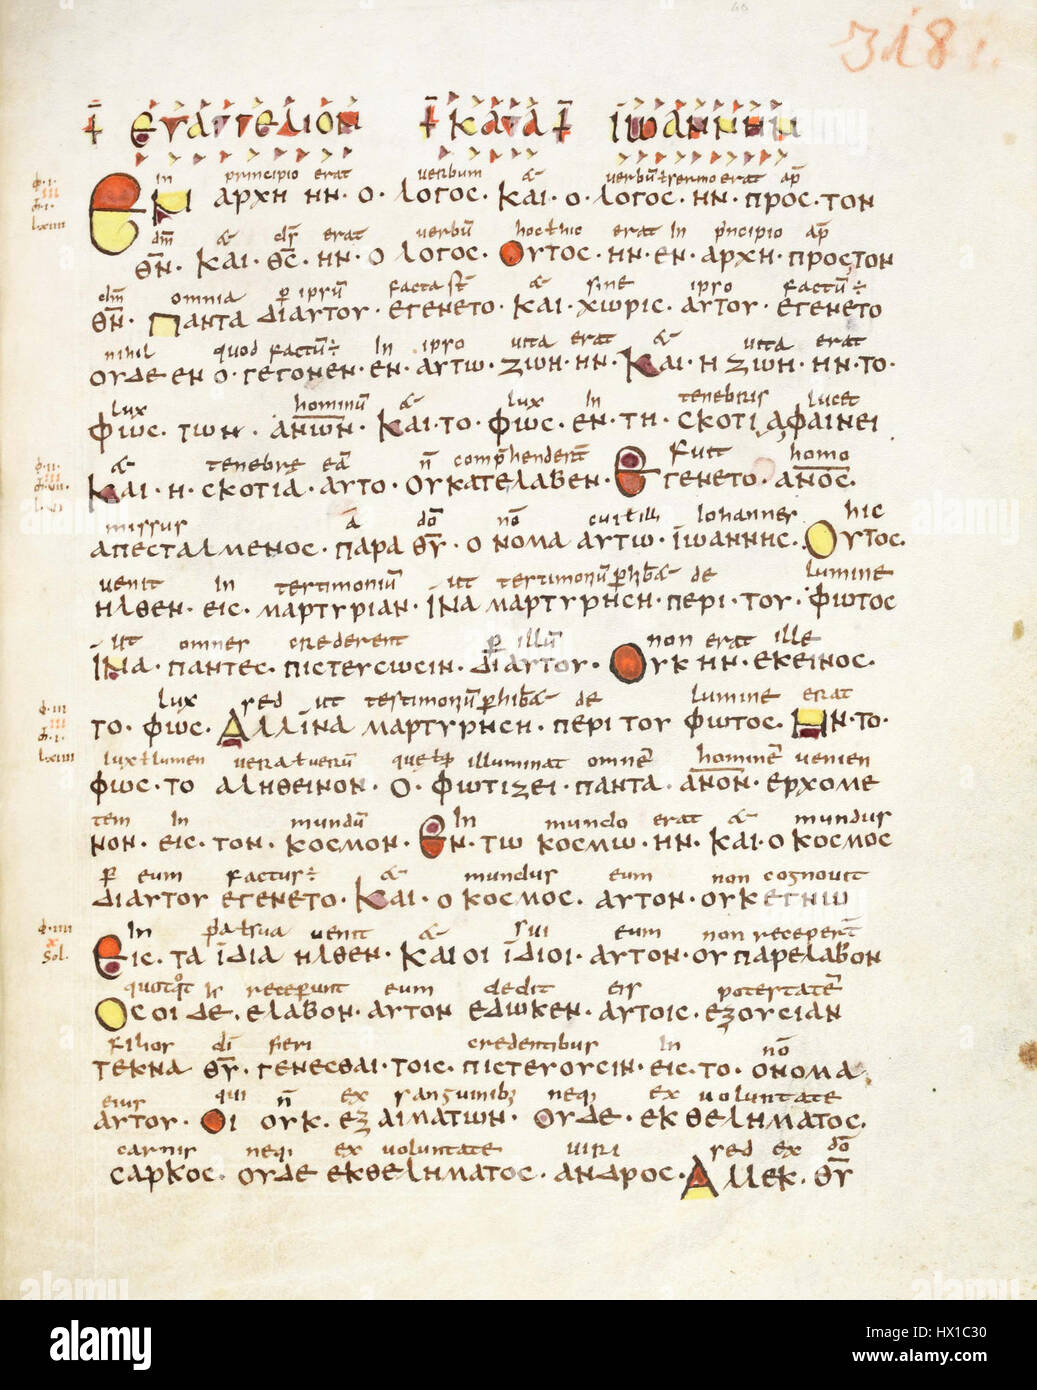 318
† ΕΥΑΓΓΕΛΙΟΝ † ΚΑΤΑ † ΙΩΑΝΝΗΝ
In principio erat verbum & verbu ł sermo erat ap̄
ΕΝ ΑΡΧΗ ΗΝ · Ο · ΛΟΓΟC · ΚΑΙ · Ο · ΛΟΓΟC · ΗΝ · ΠΡΟC · ΤΟΝ
dm̄ & ds̄ erat verbū hoc ł hic erat In prīncipio ap̄
Θ̅Ν̅ · ΚΑΙ · Θ̅C̅ · ΗΝ · Ο ΛΟΓΟC · ΟΥΤΟC · ΗΝ · ΕΝ · ΑΡΧΗ · ΠΡΟCΤΟΝ
dm̄ omnia p̄ ipsū facta st̄ & sine ipso factū ÷
Θ̅Ν̅ · ΠΑΝΤΑ ΔΙΑΥΤΟΥ · ΕΓΕΝΕΤΟ · ΚΑΙ · ΧΩΡΙC · ΑΥΤΟΥ · ΕΓΕΝΕΤΟ
nihil quod factū ÷ In ipso vita erat & vita erat
ΟΥΔΕ ΕΝ Ο · ΓΕΓΟΝΕΝ · ΕΝ · ΑΥΤΩ · ΖΩΗ · ΗΝ · ΚΑΙ · Η ΖΩΗ · ΗΝ · ΤΟ ·
lux hominū & lux In tenebris lucet
ΦΩC · ΤΩΝ · Α̅Ν̅Ω̅Ν̅ · ΚΑΙ · ΤΟ · ΦΩC · ΕΝ · ΤΗ · CΚΟΤΙΑ ΦΑΙΝΕΙ
& tenebre eā n̄ comp̄hendert̄ Fuit homo
ΚΑΙ · Η · CΚΟΤΙΑ · ΑΥΤΟ · ΟΥΚΑΤΕΛΑΒΕΝ · ΕΓΕΝΕΤΟ · Α̅Ν̅Ο̅C̅ ·
missus ā dō nō cui ł illi Iohannes hic
ΑΠΕCΤΑΛΜΕΝΟC · ΠΑΡΑ Θ̅Υ̅ · Ο ΝΟΜΑ ΑΥΤΩ · ΙΩΑΝΝΗC · ΟΥΤΟC ·
venit In testimoniū ut testimoniū p̄hib& de lumine
ΗΛΘΕΝ · ΕΙC · ΜΑΡΤΥΡΙΑΝ · ΪΝΑ ΜΑΡΤΥΡΗCΗ · ΠΕΡΙ · ΤΟΥ · ΦΩΤΟC
ut omnes crederent p̄ illū non erat ille
ΪΝΑ · ΠΑΝΤΕC · ΠΙCΤΕΥCΩCΙΝ · ΔΙΑΥΤΟΥ · ΟΥΚ ΗΝ · ΕΚΕΙΝΟC ·
lux sed ut testimoniū p̄hib& de lumine erat
ΤΟ · ΦΩC · ΑΛΛΪΝΑ ΜΑΡΤΥΡΗCΗ · ΠΕΡΙ ΤΟΥ ΦΩΤΟC · ΗΝ · ΤΟ ·
lux ł lumen vera ł verū que illuminat omnē hominē venien
ΦΩC · ΤΟ ΑΛΗΘΕΙΝΟΝ · Ο · ΦΩΤΙΖΕΙ · ΠΑΝΤΑ · Α̅Ν̅Ο̅Ν̅ · ΕΡΧΟΜΕ
tem In mundū In mundo erat & mundus
ΝΟΝ · ΕΙC · ΤΟΝ · ΚΟCΜΟΝ · ΕΝ · ΤΩ ΚΟCΜΩ · ΗΝ · ΚΑΙ · Ο ΚΟCΜΟC
p̄ eum factus ÷ & mundus eum non cognovit
ΔΙΑΥΤΟΥ ΕΓΕΝΕΤΟ · ΚΑΙ · Ο ΚΟCΜΟC · ΑΥΤΟΝ · ΟΥΚ ΕΓΝΩ
In ł sua venit & sui eum non recepert̄
ΕΙC · ΤΑ ΪΔΙΑ ΗΛΘΕΝ · ΚΑΙ ΟΙ ΪΔΙΟΙ · ΑΥΤΟΝ · ΟΥ ΠΑΡΕΛΑΒΟΝ
receperunt eum dedit eis potestatē
ΟCΟΙ ΔΕ · ΕΛΑΒΟΝ · ΑΥΤΟΝ ΕΔΩΚΕΝ · ΑΥΤΟΙC · ΕΞΟΥCΙΑΝ
filios dī fieri credentibus In nō
ΤΕΚΝΑ Θ̅Υ̅ · ΓΕΝΕCΘΑΙ · ΤΟΙC · ΠΙCΤΕΥΟΥCΙΝ · ΕΙC · ΤΟ · ΟΝΟΜΑ
eius qui n̄ ex sanguinib; neq; ex voluntate
ΑΥΤΟΥ · ΟΙ ΟΥΚ · ΕΞ ΑΙΜΑΤΩΝ · ΟΥΔΕ · ΕΚ ΘΕΛΗΜΑΤΟC ·
carnis neq; ex voluntate viri sed ex dō
CΑΡΚΟC · ΟΥΔΕ ΕΚΘΕΛΗΜΑΤΟC · ΑΝΔΡΟC · ΑΛΛΕΚ · Θ̅Υ̅
alamy
Image ID: HX1C30
www.alamy.com